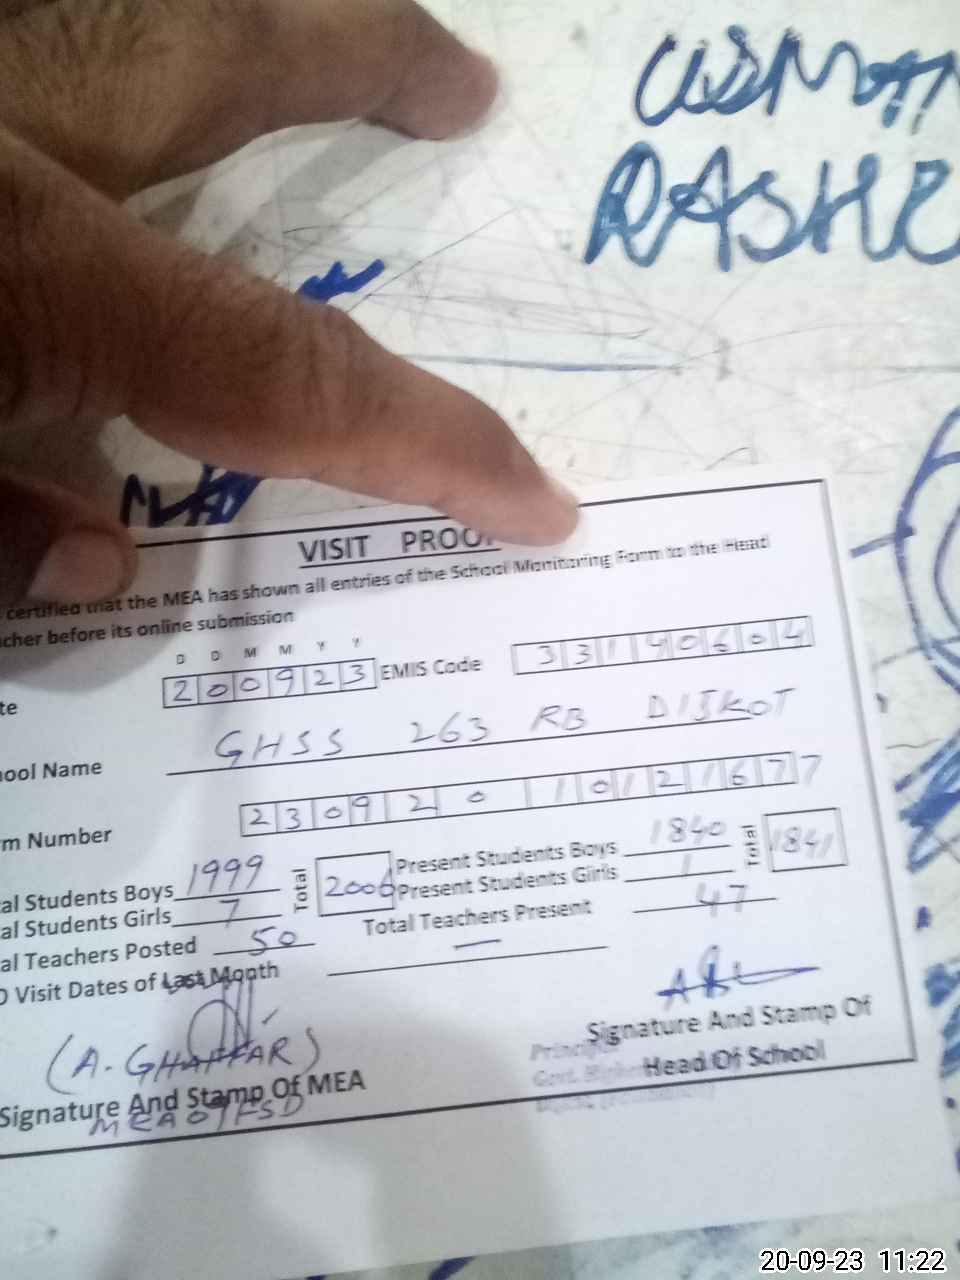 USMAN
RASHE
VISIT PROOF
certified that the MEA has shown all entries of the School Monitoring Form to the Head
cher before its online submission
D D M M Y Y
te 200923 EMIS Code 33140604
ool Name GHSS 263 RB DIJKOT
m Number 23092010121677
al Students Boys 1999 Total 2006 Present Students Boys 1840 Total 1841
al Students Girls 7 Present Students Girls 1
al Teachers Posted 50 Total Teachers Present 47
O Visit Dates of Last Month —
(A. GHAFFAR)
Signature And Stamp Of MEA
MEA 07 FSD
Signature And Stamp Of
Head Of School
Principal
Govt. Higher
20-09-23 11:22